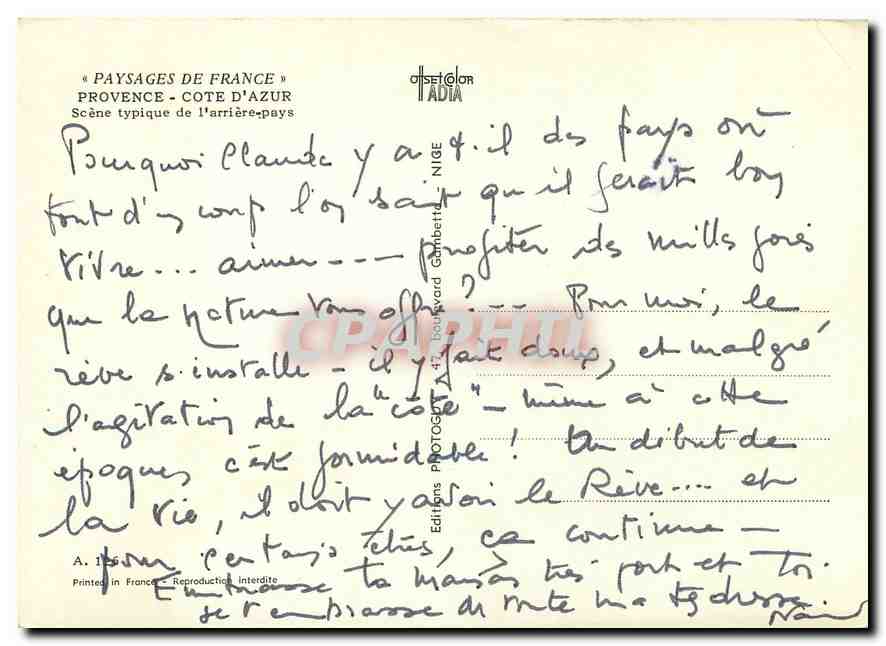 « PAYSAGES DE FRANCE »
PROVENCE - COTE D'AZUR
Scène typique de l'arrière-pays
OFFSETCOLOR
ADIA
Pourquoi Claude y a t-il des pays où
tout d'un coup l'on sait qu'il ferait bon
vivre... aimer --- profiter des milles joies
que la nature vous offre? -- Pour moi, le
rêve s'installe - il y fait doux, et malgré
l'agitation de la "côte" - même à cette
époque, c'est formidable! Au début de
la vie, il doit y avoir le Rêve.... et
pour certains êtres, ça continue -
Embrasse ta maman très fort et toi
je t'embrasse de toute ma tendresse.
Editions PHOTOGUY 47, boulevard Gambetta - NICE
CPAPHIL
A.
Printed in France - Reproduction interdite